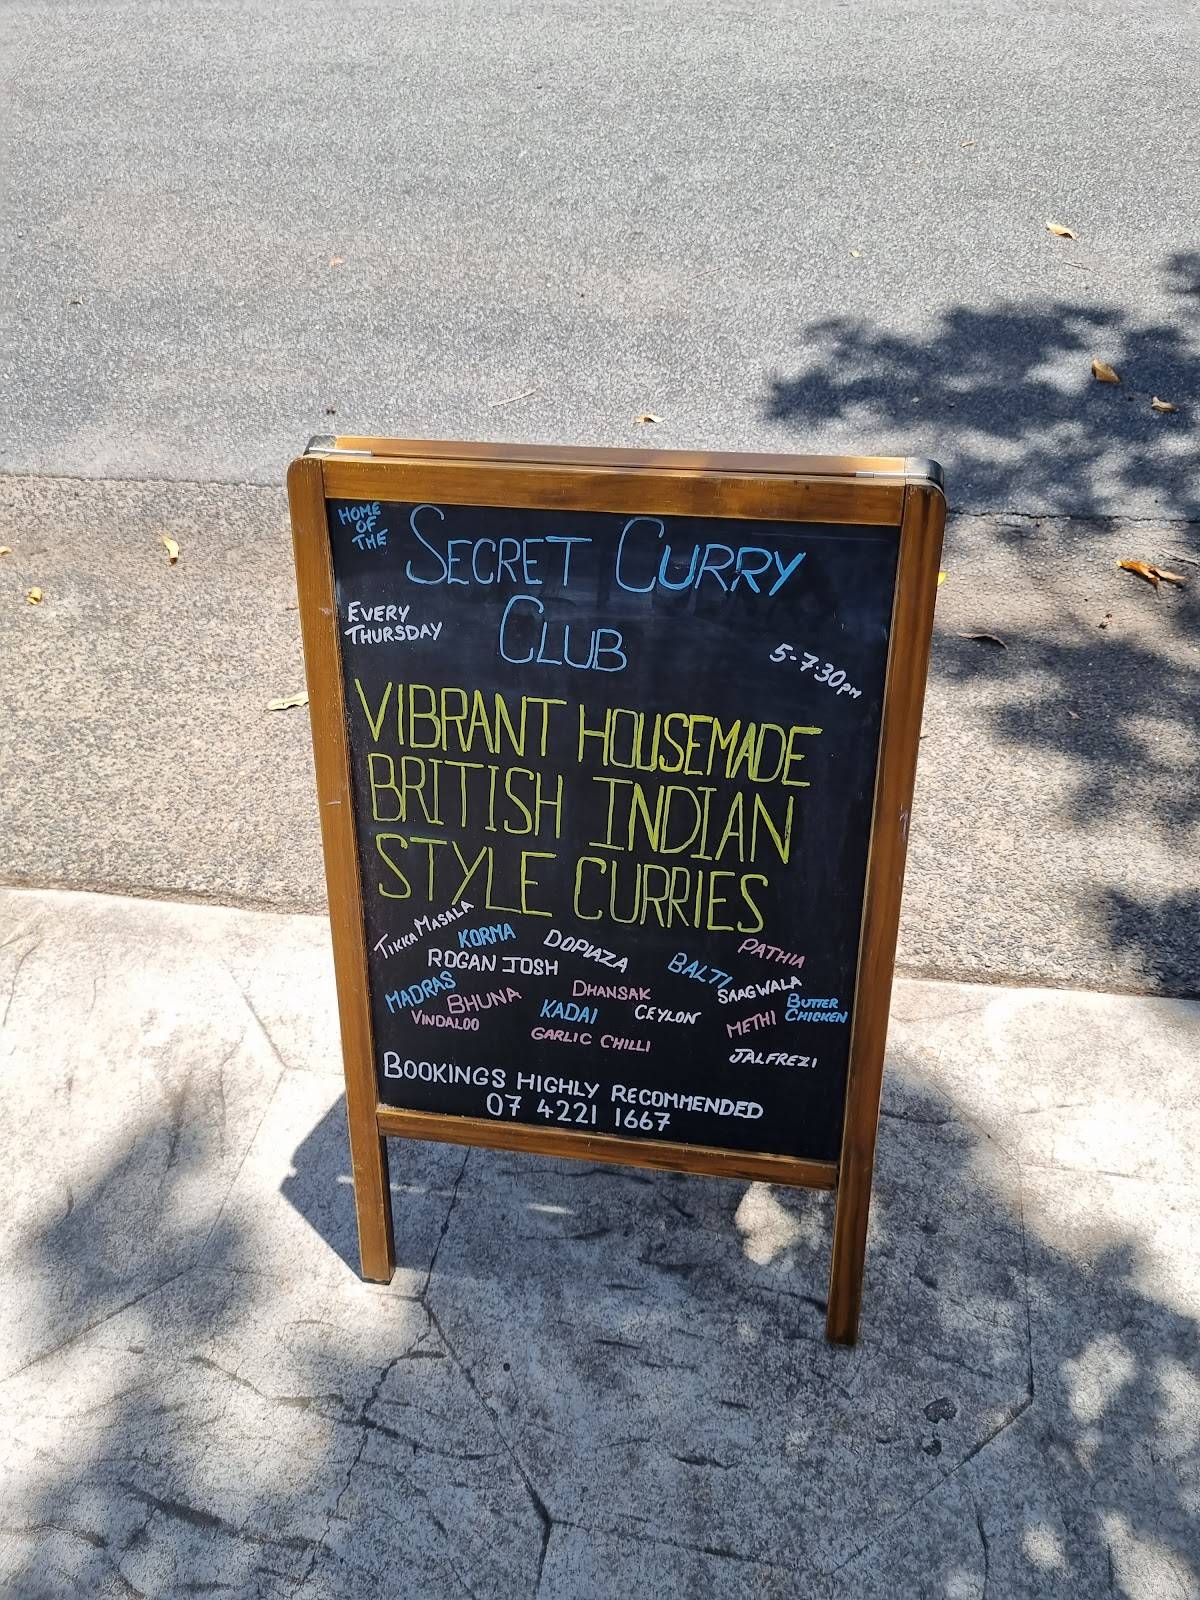 HOME
OF
THE
SECRET CURRY
CLUB
EVERY
THURSDAY
5-7.30PM
VIBRANT HOUSEMADE
BRITISH INDIAN
STYLE CURRIES
TIKKA MASALA
KORMA
DOPIAZA
PATHIA
ROGAN JOSH
BALTI
SAAGWALA
MADRAS
BHUNA
DHANSAK
BUTTER
CHICKEN
VINDALOO
KADAI
CEYLON
METHI
GARLIC CHILLI
JALFREZI
BOOKINGS HIGHLY RECOMMENDED
07 4221 1667